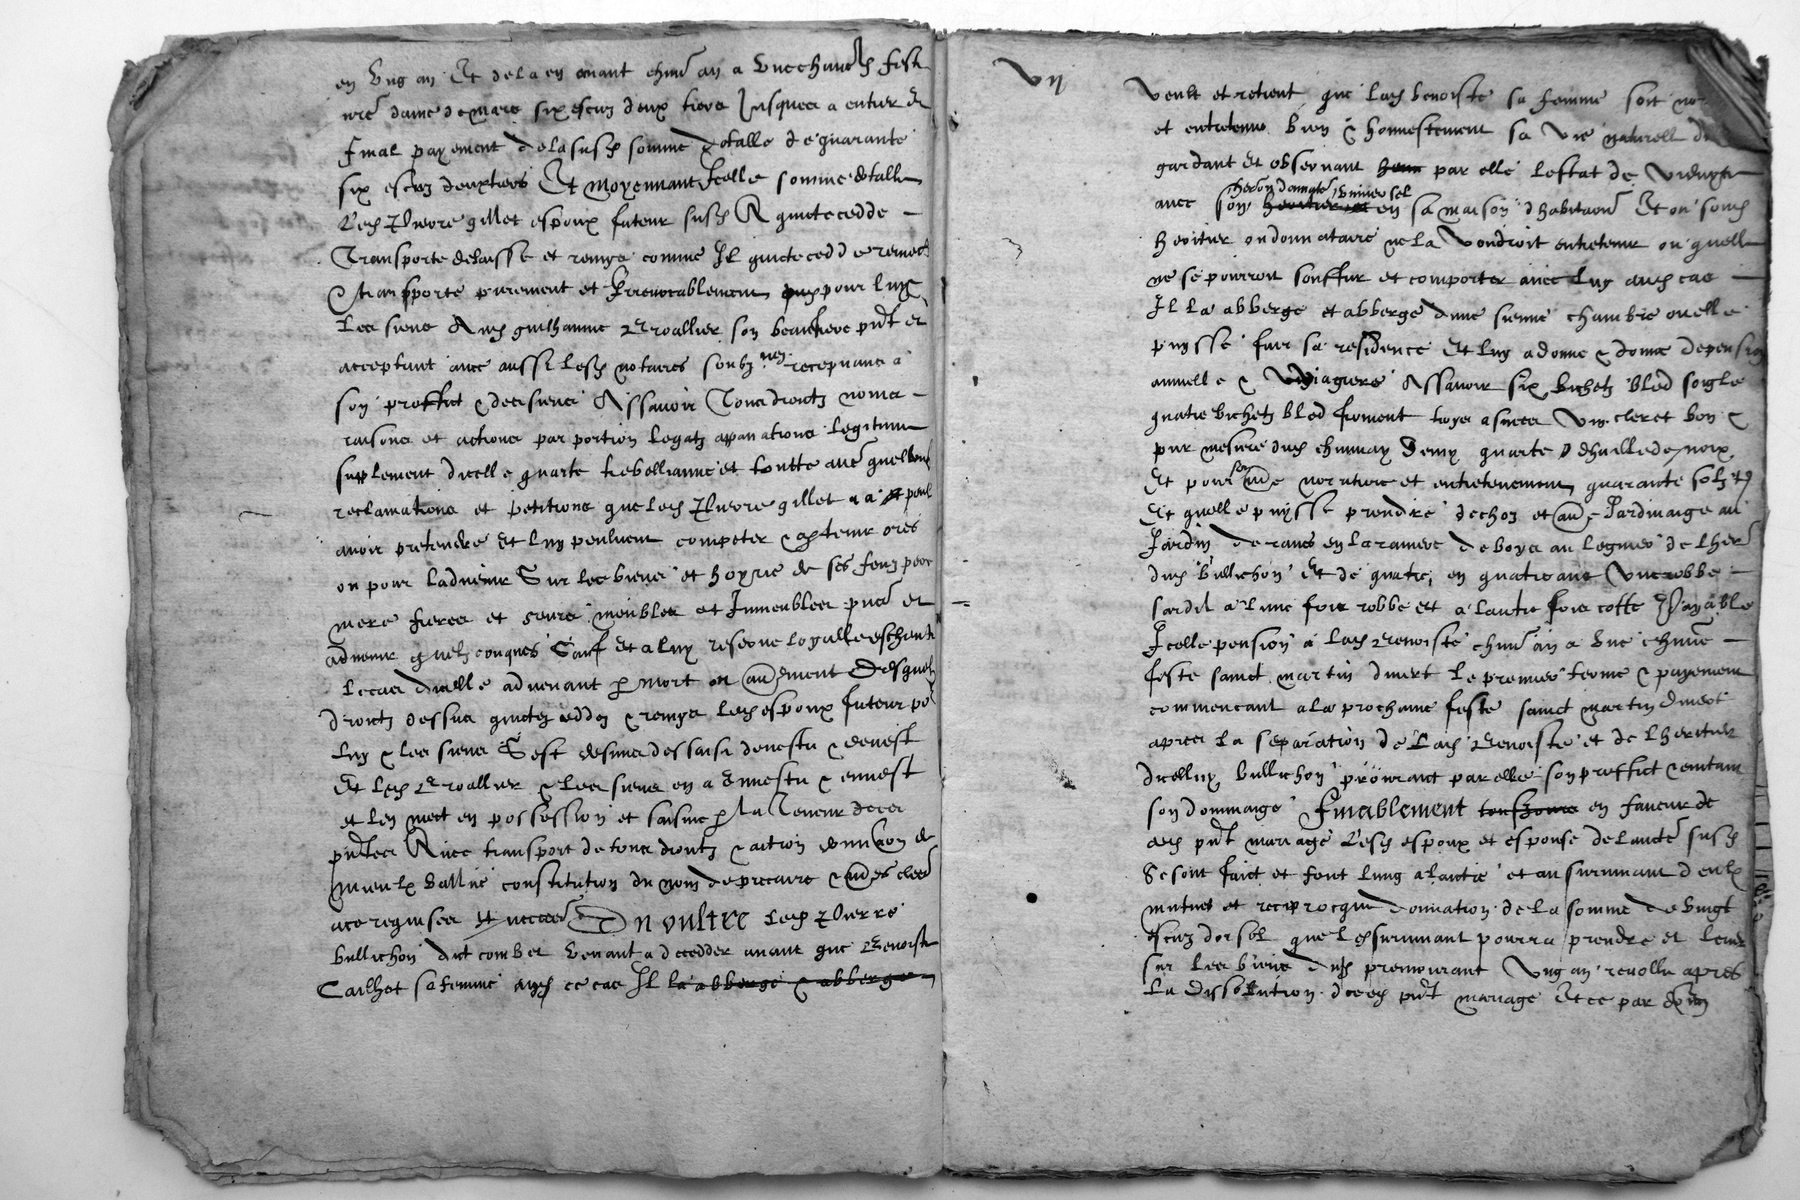 en ung an Et de la en avant chun an a une chune feste
nre dame de mars six escuz deux tiers Jusques a entier et
final payement de la susd somme totalle de quarante
six escuz deux tiers Et moyennant Icelle somme totalle
Led Pierre gillet espoux futeur susd A quicte cedde
Transporte delaisse et remys comme Il quicte cedde remect
& transporte purement et Irrevocablement pour luy
Les siens Aud guilhaume Broallier son beaufrere pnt et
acceptant avec aussi lesd notaires soubz nez recepvans a
son proffict & des siens Assavoir Tous droictz noms
raisons et actions par portion legatz appanations legitime
supplement dicelle quarte trebellianne et toutte autre quelconq
reclamations et petitions que led Pierre gillet a a peult
avoir pretendre Et luy peulvent competer & aptenir ores
ou pour ladvenir Sur les biens et hoyrie de ses feuz pere
mere freres et seurs meubles et Immeubles pns et
advenir quelzconques Sauf Et a luy reserve loyalle escheutte
le cas dicelle advenant p mort ou aument Desquelz
droictz dessus quictez ceddez & remys led espoux futeur po
luy & les siens S est desmis dessaisi devestu & devest
Et led Broallier & les siens en a Investu & envest
et len mect en possession et saisine p la Teneur de ces
pntes Avec transport de tous droictz & action
mieulx vallue constitution du nom de precaire & aues cles
ace requises et necces En oultre led Pierre
bullichon dict combet venant a decedder avant que Benoiste
Cailhot sa femme aud ce cas Il la abberge & abberge
VII
Veult et retient que lad benoiste sa femme soit
et entretenue bien & honnestement sa vie naturell
gardant et observant par elle lestat de viduyte
avec son heritier en sa maison dhabitaon Et ou sond
her ou donnatre universel
heritier ou donnataire ne la vouldroit entretenir ou quelle
ne se pourroit souffrir et comporter avec luy aud cas
Il la abberge et abberge dune sienne chambre ou elle
puysse fair sa residence Et luy a donne & donne de pension
annuelle & viagiere Assavoir six bichetz bled soigle
quatre bichetz bled froment troys asnees vin cleret bon &
pur mesure dud chunay Demy quarte dhuille de noix
Et pour sa aue noriture et entretenement quarante solz tz
Et quelle puysse prendre de choz et aue Jardinaige au
Jardin de raves en la raviere de boys au legnier de lher
dud bullichon Et de quatre en quatre ans une robbe
sardil a lune fois robbe et a lautre fois cotte Payable
Icelle pension a lad Benoiste chun an a une chune
feste sainct martin diver le premier terme & payement
commencant a la prochaine feste sainct martin diver
apres la separation de lad Benoiste et de lheritier
dicelluy bullichon procurant par elle son proffict & evitant
son dommage Finablement tousjours en faveur de
ced pnt mariage Lesd espoux et espouse de laucte susd
Se sont faict et font lung a lautre et au survivant deulx
mutuel et reciprocque donnation de la somme de vingt
escuz dor sol que led survivant pourra prendre et lever
sur les biens dud premourant Ung an revollu apres
la dissolution de ced pnt mariage Et ce par donaon